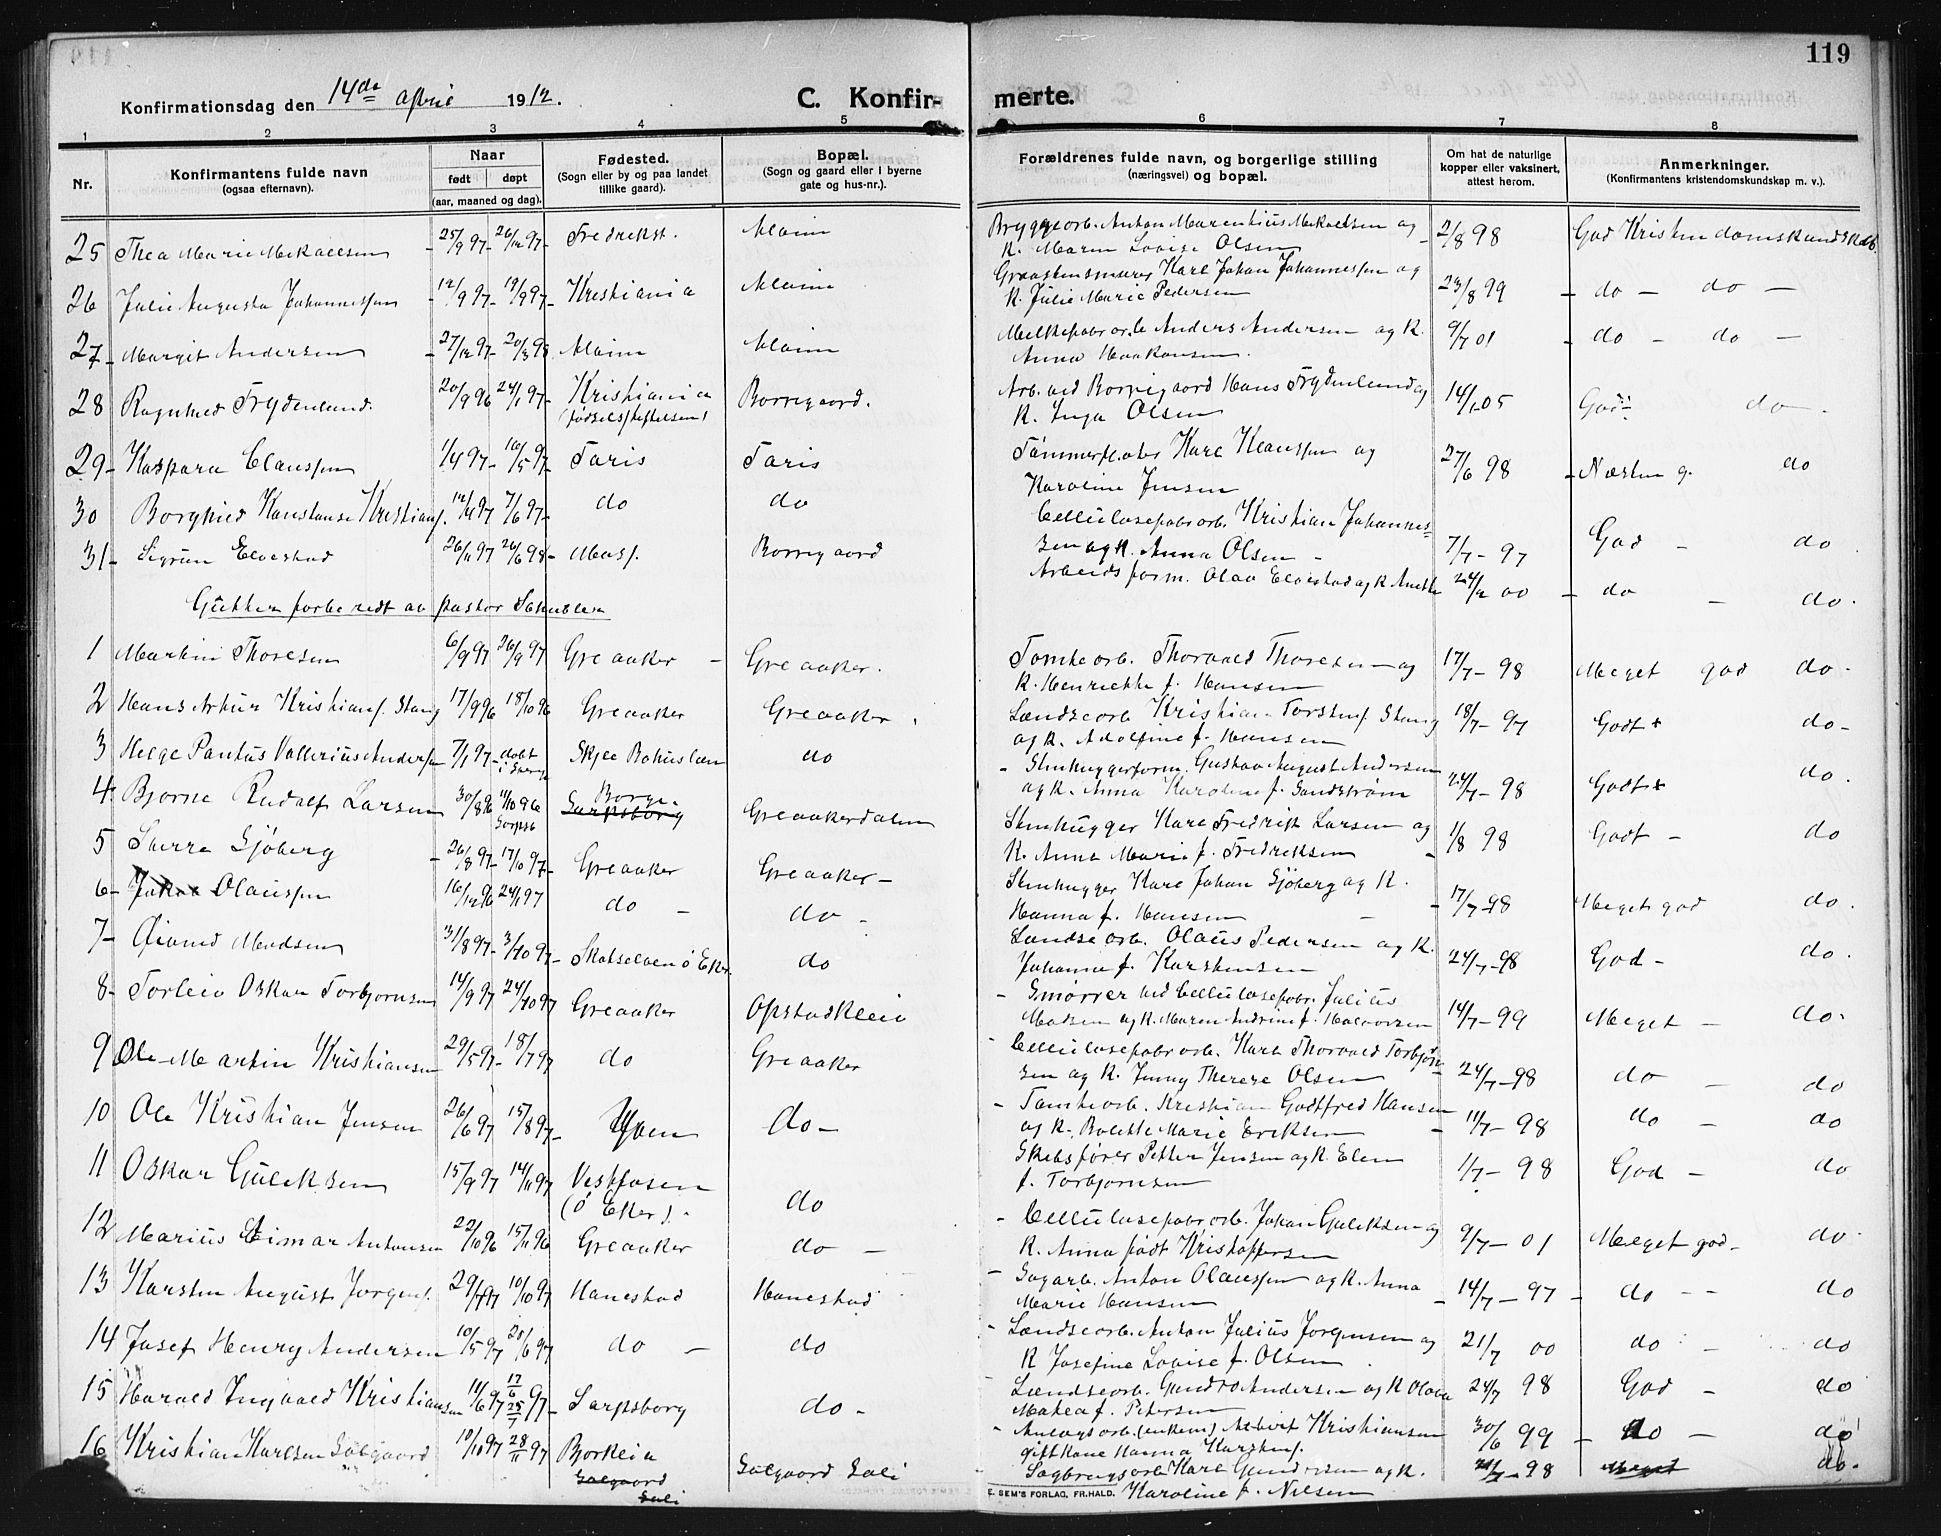 119
Konfirmationsdag den 14de April 1912.
C. Konfirmerte.
1 2 3 4 5 6 7 8
Nr.
Konfirmantens fulde navn
(ogsaa efternavn).
Naar
født døpt
(aar, maaned og dag).
Fødested.
(Sogn eller by og paa landet
tillike gaard).
Bopæl.
(Sogn og gaard eller i byerne
gate og hus-nr.).
Forældrenes fulde navn, og borgerlige stilling
(næringsvei) og bopæl.
Om hat de naturlige
kopper eller vaksinert,
attest herom.
Anmerkninger.
(Konfirmantens kristendomskundskap m. v.).
25 Thea Marie Mekaelsen 25/9 97 - 26/12 97 - Fredrikst. Alvim Bryggearb. Anton Marentius Mekaelsen og
K. Maren Lovise Olsen 2/8 98 God Kristendomskundskab
26 Julie Augusta Johannessen 12/9 97 - 19/9 97 - Kristiania Alvim Graastensmurer Karl Johan Johannessen og
K. Julie Marie Pedersen 23/8 99 - do - do -
27 - Margit Andersen 27/12 97 - 20/3 98 Alvim Alvim Melkefabarb. Anders Andersen og K.
Anna Haakonsen. 9/7 01 - do - do -
28 Ragnhild Frydenlund. 20/9 96 24/1 97 - Kristiania
(fødselsstiftelsen) Borregaard. Arb. ved Borregaard Hans Frydenlund og
K. Inga Olsen 14/1 05 God do.
29 - Kaspara Claussen 1/4 97 - 16/5 97 - Taris Taris Tømmerfløter Karl Klaussen og
Karoline Jensen 27/6 98 - Næsten g. do
30 Borghild Konstanse Kristians. 12/4 97 7/6 97 - do do Cellulosefabarb. Kristian Johannes-
sen og K. Anna Olsen - 7/7 - 97 God - do
31 - Sigrun Elvestad 26/11 97 26/6 98 - Moss. Borregaard Arbeidsform. Olav Elvestad og K. Anette 24/2 00 - do - do.
Gutter forberedt av pastor Schubler
1 Martin Thoresen 6/9 97 26/9 97 Greaaker - Greaaker. Tomtearb. Thorvald Thoresen og
K. Henriette f. Hansen 17/7 - 98 Meget god do -
2 Hans Arthur Kristians. Stang 17/9 96 18/10 96 Greaaker Greaaker. Lændsearb Kristian Torstens. Stang
og K. Adolfine f. Hansen 18/7 - 97 Godt + do -
3 Helge Pontus Vallerius Andersen 7/1 97 - døbt
i Sverige Skjee Bohuslæn do - Stenhuggerform. Gustav August Andersen
og K. Anna Karoline f. Sandstrøm 24/7 - 98 Godt + do.
4. Bjarne Rudolf Larsen 30/8 96 11/10 96
Sarpsb Borge. Sarpsborg Greaakerdalen Stenhugger Karl Fredrik Larsen og
K. Anna Marie f. Fredriksen 1/8 98 Godt - do
5 Sverre Sjöberg - 26/8 97 - 17/10 97 - Greaaker Greaaker - Stenhugger Karl Johan Sjöberg og K.
Hanna f. Hansen - 17/7 - 98 Meget god do.
6 - Olaussen 16/12 96 24/1 97 do - do - Lændsearb. Olaus Pedersen og K.
Johanne f. Karstensen 24/7 - 98 God - do.
7 - Øivind Madsen 31/8 97 - 3/10 97 - Skotselven ö Eker. do - Smörer ved Cellulosefabr. Julius
Madsen og K. Maren Andrine f. Halvorsen 14/7 - 99 Meget - do.
8 - Torleiv Oskar Torbjornsen 14/9 97 24/10 97 Greaaker Opstadkleiv - Cellulosefabarb. Karl Thorvald Torbjørn-
sen og K. Jenny Therese Olsen 24/7 - 98 do - do
9 Ole Martin Kristiansen 29/5 97 - 18/7 97 do Greaaker - Tomtearb. Kristian Godtfred Hansen
og K. Bolette Marie Eriksen 11/7 - 98 do - do
10 Ole Kristian Jensen 26/6 97 15/8 97 - Yven do - Skibsfører Petter Jensen og K. Elen
f. Torbjornsen 1/7 - 98 God - do
11 Oskar Guliksen 15/9 97 14/11 97 Vestfosen
(ö Eker). do - Cellulosefabarb. Johan Guliksen og
K. Anna født Kristoffersen 9/7 - 01 Meget god - do.
12 Marius Eimar Antonsen 22/10 96 15/11 96 Greaaker do - - Sagarb. Anton Olaussen og K. Anna
Marie Hansen - 14/7 - 97 - do - - do
13 Karsten August Jorgens. 29/7 97 10/10 97 Hanestad Hanestad - Lændsearb. Anton Julius Jorgensen og
K Josefine Lovise f. Olsen 21/7 00 do - do
14 Josef Henry Andersen 10/5 97 20/6 97 do - do - Lændsearb. Gundro Andersen og K Olava
Matea f. Petersen 24/7 98 God - do
15 Harald Ingvald Kristiansen 11/6 97 17/6 25/7 97 - Sarpsborg do - - Anlægsarb. (enkem) Albert Kristiansen
gift Kone Hanna Karstens. 30/6 99 - do - do
16 Kristian Karlsen Solgaard 10/10 97 28/11 97 Borkleiva
Solgaard
Soli Solgaard Soli Sagbrugsarb Karl Gundersen og K.
Karoline f. Nilsen 21/7 - 98 Meget do.
E. SEM'S FORLAG, FR.HALD.